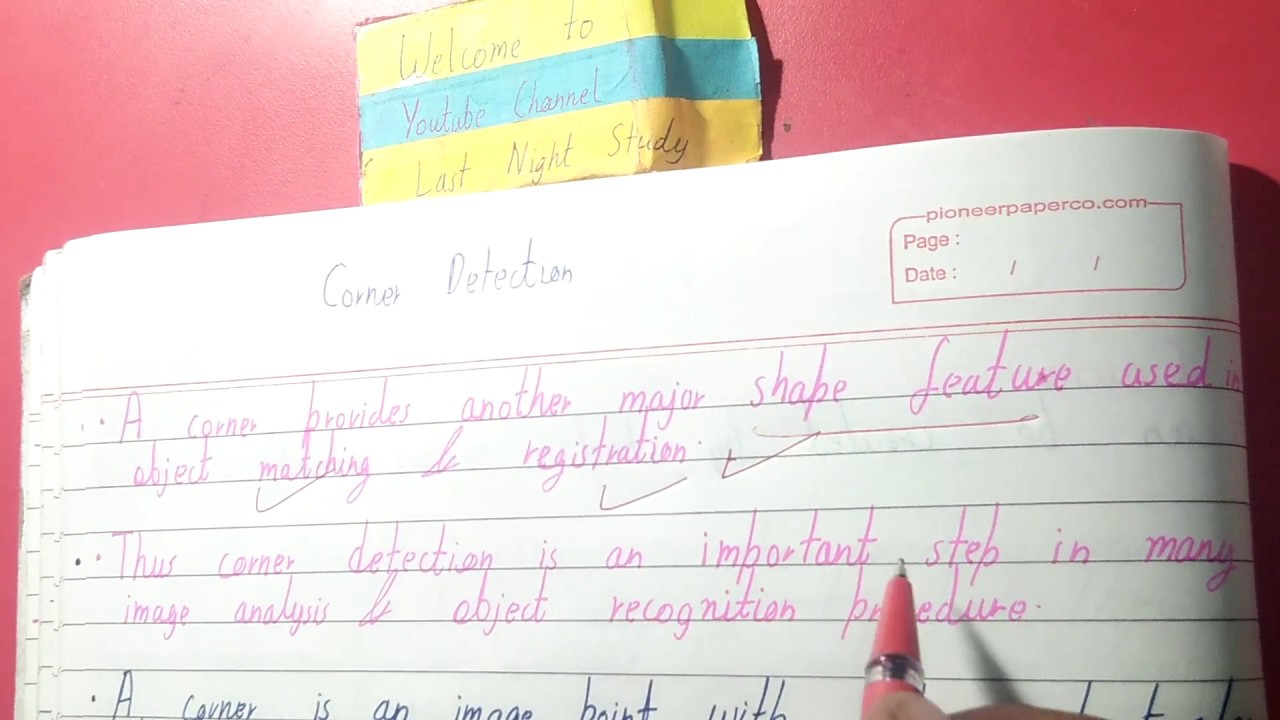 Welcome to
Youtube Channel
Last Night Study
pioneerpaperco.com
Page :
Date : / /
Corner Detection
· A corner provides another major shape feature used in
object matching & registration.
· Thus corner detection is an important step in many
image analysis & object recognition procedure.
· A corner is an image point with